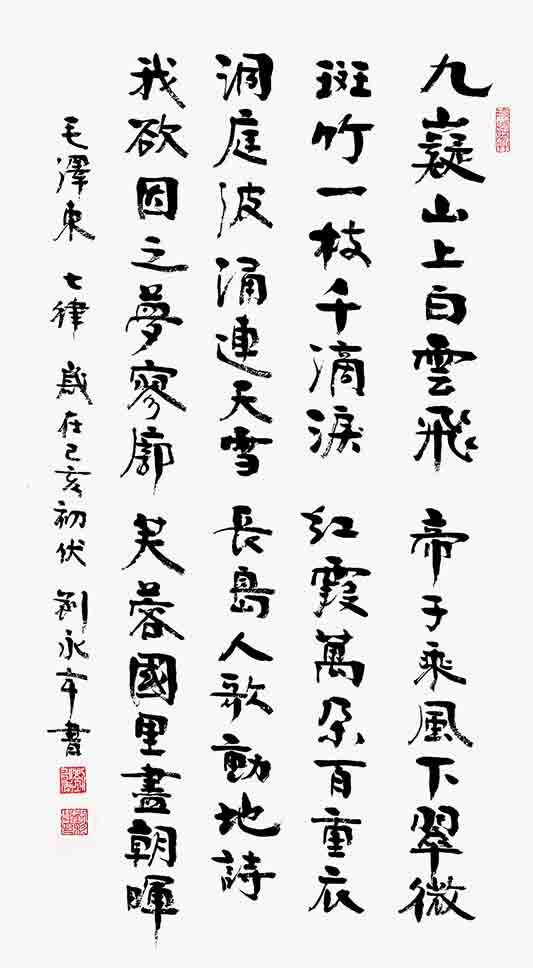 九嶷山上白雲飛 帝子乘風下翠微
斑竹一枝千滴淚 紅霞萬朵百重衣
洞庭波涌連天雪 長島人歌動地詩
我欲因之夢寥廓 芙蓉國里盡朝暉
毛澤東 七律 歲在己亥初伏 劉永書